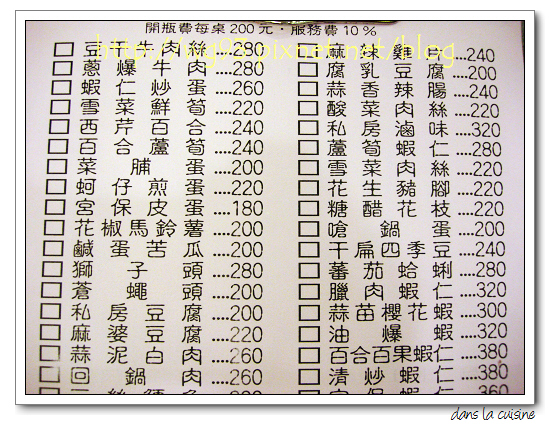 開瓶費每桌200元・服務費10%
□豆干牛肉絲....280
□蔥爆牛肉....280
□蝦仁炒蛋....260
□雪菜鮮筍....220
□西芹百合....240
□百合蘆筍....240
□菜脯蛋....200
□蚵仔煎蛋....220
□宮保皮蛋....180
□花椒馬鈴薯....200
□鹹蛋苦瓜....200
□獅子頭....280
□蒼蠅頭....200
□私房豆腐....200
□麻婆豆腐....220
□蒜泥白肉....260
□回鍋肉....260
□麻辣雞丁....240
□腐乳豆腐....200
□蒜香辣腸....240
□酸菜肉絲....220
□私房滷味....320
□蘆筍蝦仁....280
□雪菜肉絲....220
□花生豬腳....220
□糖醋花枝....220
□嗆鍋蛋....200
□干扁四季豆....240
□蕃茄蛤蜊....280
□臘肉蝦仁....320
□蒜苗櫻花蝦....300
□油爆蝦....320
□百合百果蝦仁....380
□清炒蝦仁....380
□宮保蝦仁....360
dans la cuisine